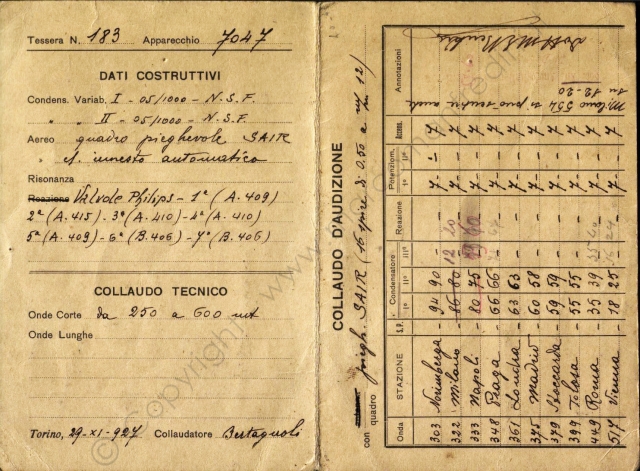 Tessera N. 183 Apparecchio 7047
DATI COSTRUTTIVI
Condens. Variab. I - 05/1000 - N.S.F.
" " II - 05/1000 - N.S.F.
Aereo quadro pieghevole SAIR
" A. innesto automatico
Risonanza
Reazione Valvole Philips - 1ª (A. 409)
2ª (A. 415) - 3ª (A. 410) - 4ª (A. 410)
5ª (A. 409) - 6ª (B. 406) - 7ª (B. 406)
COLLAUDO TECNICO
Onde Corte da 250 a 600 mt
Onde Lunghe
Torino, 29-XI-927 Collaudatore Bertagnoli
COLLAUDO D'AUDIZIONE
con quadro piegh. SAIR (16 spire di 0.50 a
Onda STAZIONE S.P. Condensatore II° III° Reazione Potenziom. I° II° Accens. Annotazioni
303 Norimberga - 94 90 - - 7 - 7
322 Milano - 86 80 12 10 - 7 - 7
333 Napoli - 80 75 - 7 - 7
348 Praga - 66 66 - 7 - 7
361 Londra - 63 63 - - 7 - 7
375 Madrid - 60 58 - - 7 - 7
379 Stoccarda - 59 59 - - 7 - 7
399 Tolosa - 55 55 - - 7 - 7
449 Roma - 35 39 - 7 - 7
517 Vienna - 18 25 - 7 - 7
Milano 554 si può sentire anche
su 12-20